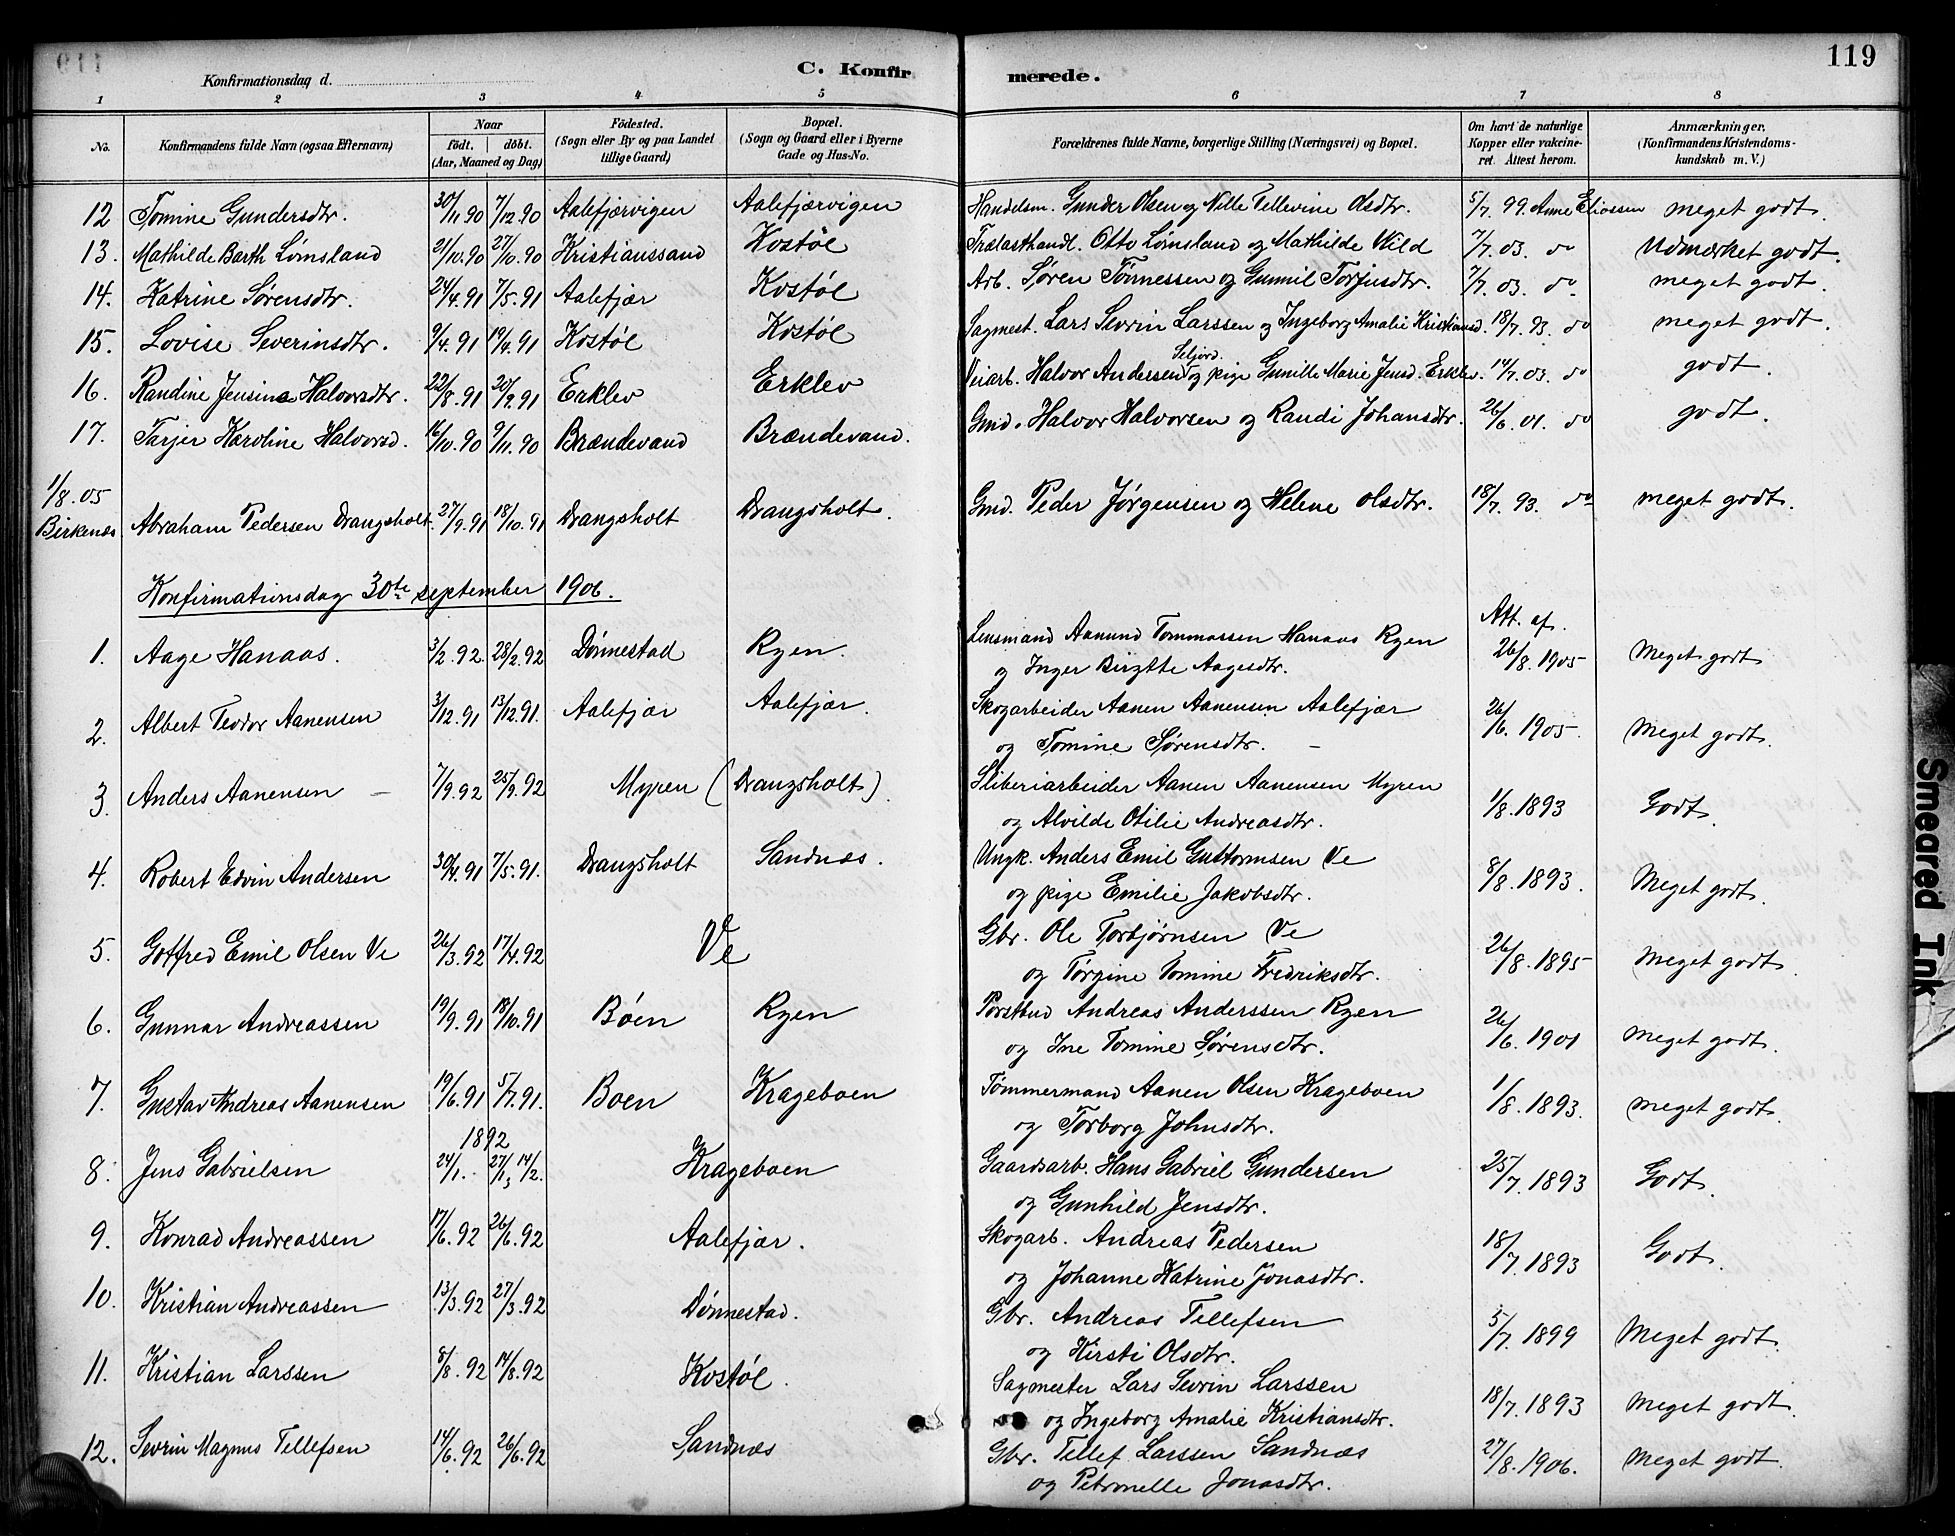 119
C. Konfirmerede.
Konfirmationsdag d.
1 2 3 4 5 6 7 8
No. Konfirmandens fulde Navn (ogsaa Efternavn) Naar födt. döbt. (Aar, Maaned og Dag) Födested. (Sogn eller By og paa Landet tillige Gaard) Bopæl. (Sogn og Gaard eller i Byerne Gade og Hus-No. Forældrenes fulde Navne, borgerlige Stilling (Næringsvei) og Bopæl. Om havt de naturlige Kopper eller vakcineret. Attest herom. Anmærkninger. (Konfirmandens Kristendomskundskab m. V.)
12 Tomine Gundersdtr. 30/11.90 7/12.90 Aalefjærvigen Aalefjærvigen Handelsm. Gunder Olsen og Nille Tellevine Olsdtr. 5/7. 99. Anne Eliassen meget godt.
13. Mathilde Barth Lømsland 21/10.90 27/10.90 Kristianssand Kostøl Trælasthandl. Otto Lømsland og Mathilde Wild 7/7. 03. do Udmærket godt.
14. Katrine Sørensdtr. 24/4.91 7/5.91 Aalefjær Kostøl Arb. Søren Tønnessen og Gunnil Torjusdtr. 7/7. 03. do meget godt.
15. Lovise Severinsdtr. 9/4.91 19/4.91 Kostøl Kostøl Sagmest. Lars Sevrin Larssen og Ingeborg Amalie Kristiansd. 18/7. 93. do meget godt.
16. Randine Jensine Halvorsdtr. 22/8.91 20/9.91 Erklev Erklev Veiarb. Halvor Andersen Seljord. og pige Gunille Marie Jensd. Erklev. 14/7. 03. do godt.
17. Tarjer Karoline Halvorsd. 16/10.90 9/11.90 Brændevand Brændevand. Gmd. Halvor Halvorsen og Randi Johansdtr. 26/6. 01. do godt.
1/8.05
Birkenæs Abraham Pedersen Drangsholt. 27/9.91 18/10.91 Drangsholt Drangsholt. Gmd. Peder Jørgensen og Helene Olsdtr. 18/7. 93. do meget godt.
Konfirmationsdag 30te september 1906.
Att. af.
1. Aage Hanaas. 3/2.92. 28/2.92 Dønnestad Ryen. Lensmand Aanund Tommassen Hanaas Ryen 26/8.1905 Meget godt
og Inger Birgitte Aagesdtr.
2. Albert Teodor Aanensen 3/12.91 13/12.91. Aalefjær Aalefjær. Skogarbeider Aanen Aanensen Aalefjær 26/6. 1905. Meget godt.
og Tomine Sørensdtr. —
3. Anders Aanensen — 7/9.92 25/9.92 Myren (Drangsholt). Sliberiarbeider Aanen Aanensen Myren 1/8.1893 Godt.
og Alvilde Otilie Andreasdtr.
4. Robert Edvin Andersen 30/4.91 7/5.91. Drangsholt Sandnæs. Ungk. Anders Emil Guttormsen Ve 8/8.1893. Meget godt.
og pige Emilie Jakobsdtr.
5. Gotfred Emil Olsen Ve 26/3.92 17/4.92 Ve Gbr. Ole Torbjørnsen Ve 26/8.1895 Meget godt.
og Tørgine Tomine Fredriksdtr.
6. Gunnar Andreassen 19/9.91 18/10.91 Bøen Ryen Postbud Andreas Anderssen Ryen 26/6. 1901 Meget godt.
og Ine Tomine Sørensdtr.
7. Gustav Andreas Aanensen 19/6.91 5/7.91. Boen Krageboen Tømmermand Aanen Olsen Krageboen 1/8.1893. Meget godt.
og Torborg Johnsdtr.
1892
8. Jens Gabrielsen 24/1. 27/1, 14/2. Krageboen Gaardsarb. Hans Gabriel Gundersen 25/7.1893 Godt.
og Gunhild Jensdtr.
9. Konrad Andreassen 17/6.92 26/6.92 Aalefjær. Skogarb. Andreas Pedersen 18/7. 1893 Godt.
og Johanne Katrine Jonasdtr.
10. Kristian Andreassen 13/3.92 27/3.92 Dønnestad. Gbr. Andreas Tellefsen 5/7. 1899 Meget godt.
og Kirsti Olsdtr.
11. Kristian Larssen 8/8.92 14/8.92 Kostøl. Sagmester Lars Sevrin Larssen 18/7.1893 Meget godt.
og Ingeborg Amalie Kristiansdtr.
12. Sevrin Magnus Tellefsen 14/6.92 26/6.92 Sandnæs Gbr. Tellef Larssen Sandnæs 27/8.1906. Meget godt.
og Petronelle Jonasdtr.
Smeared Ink